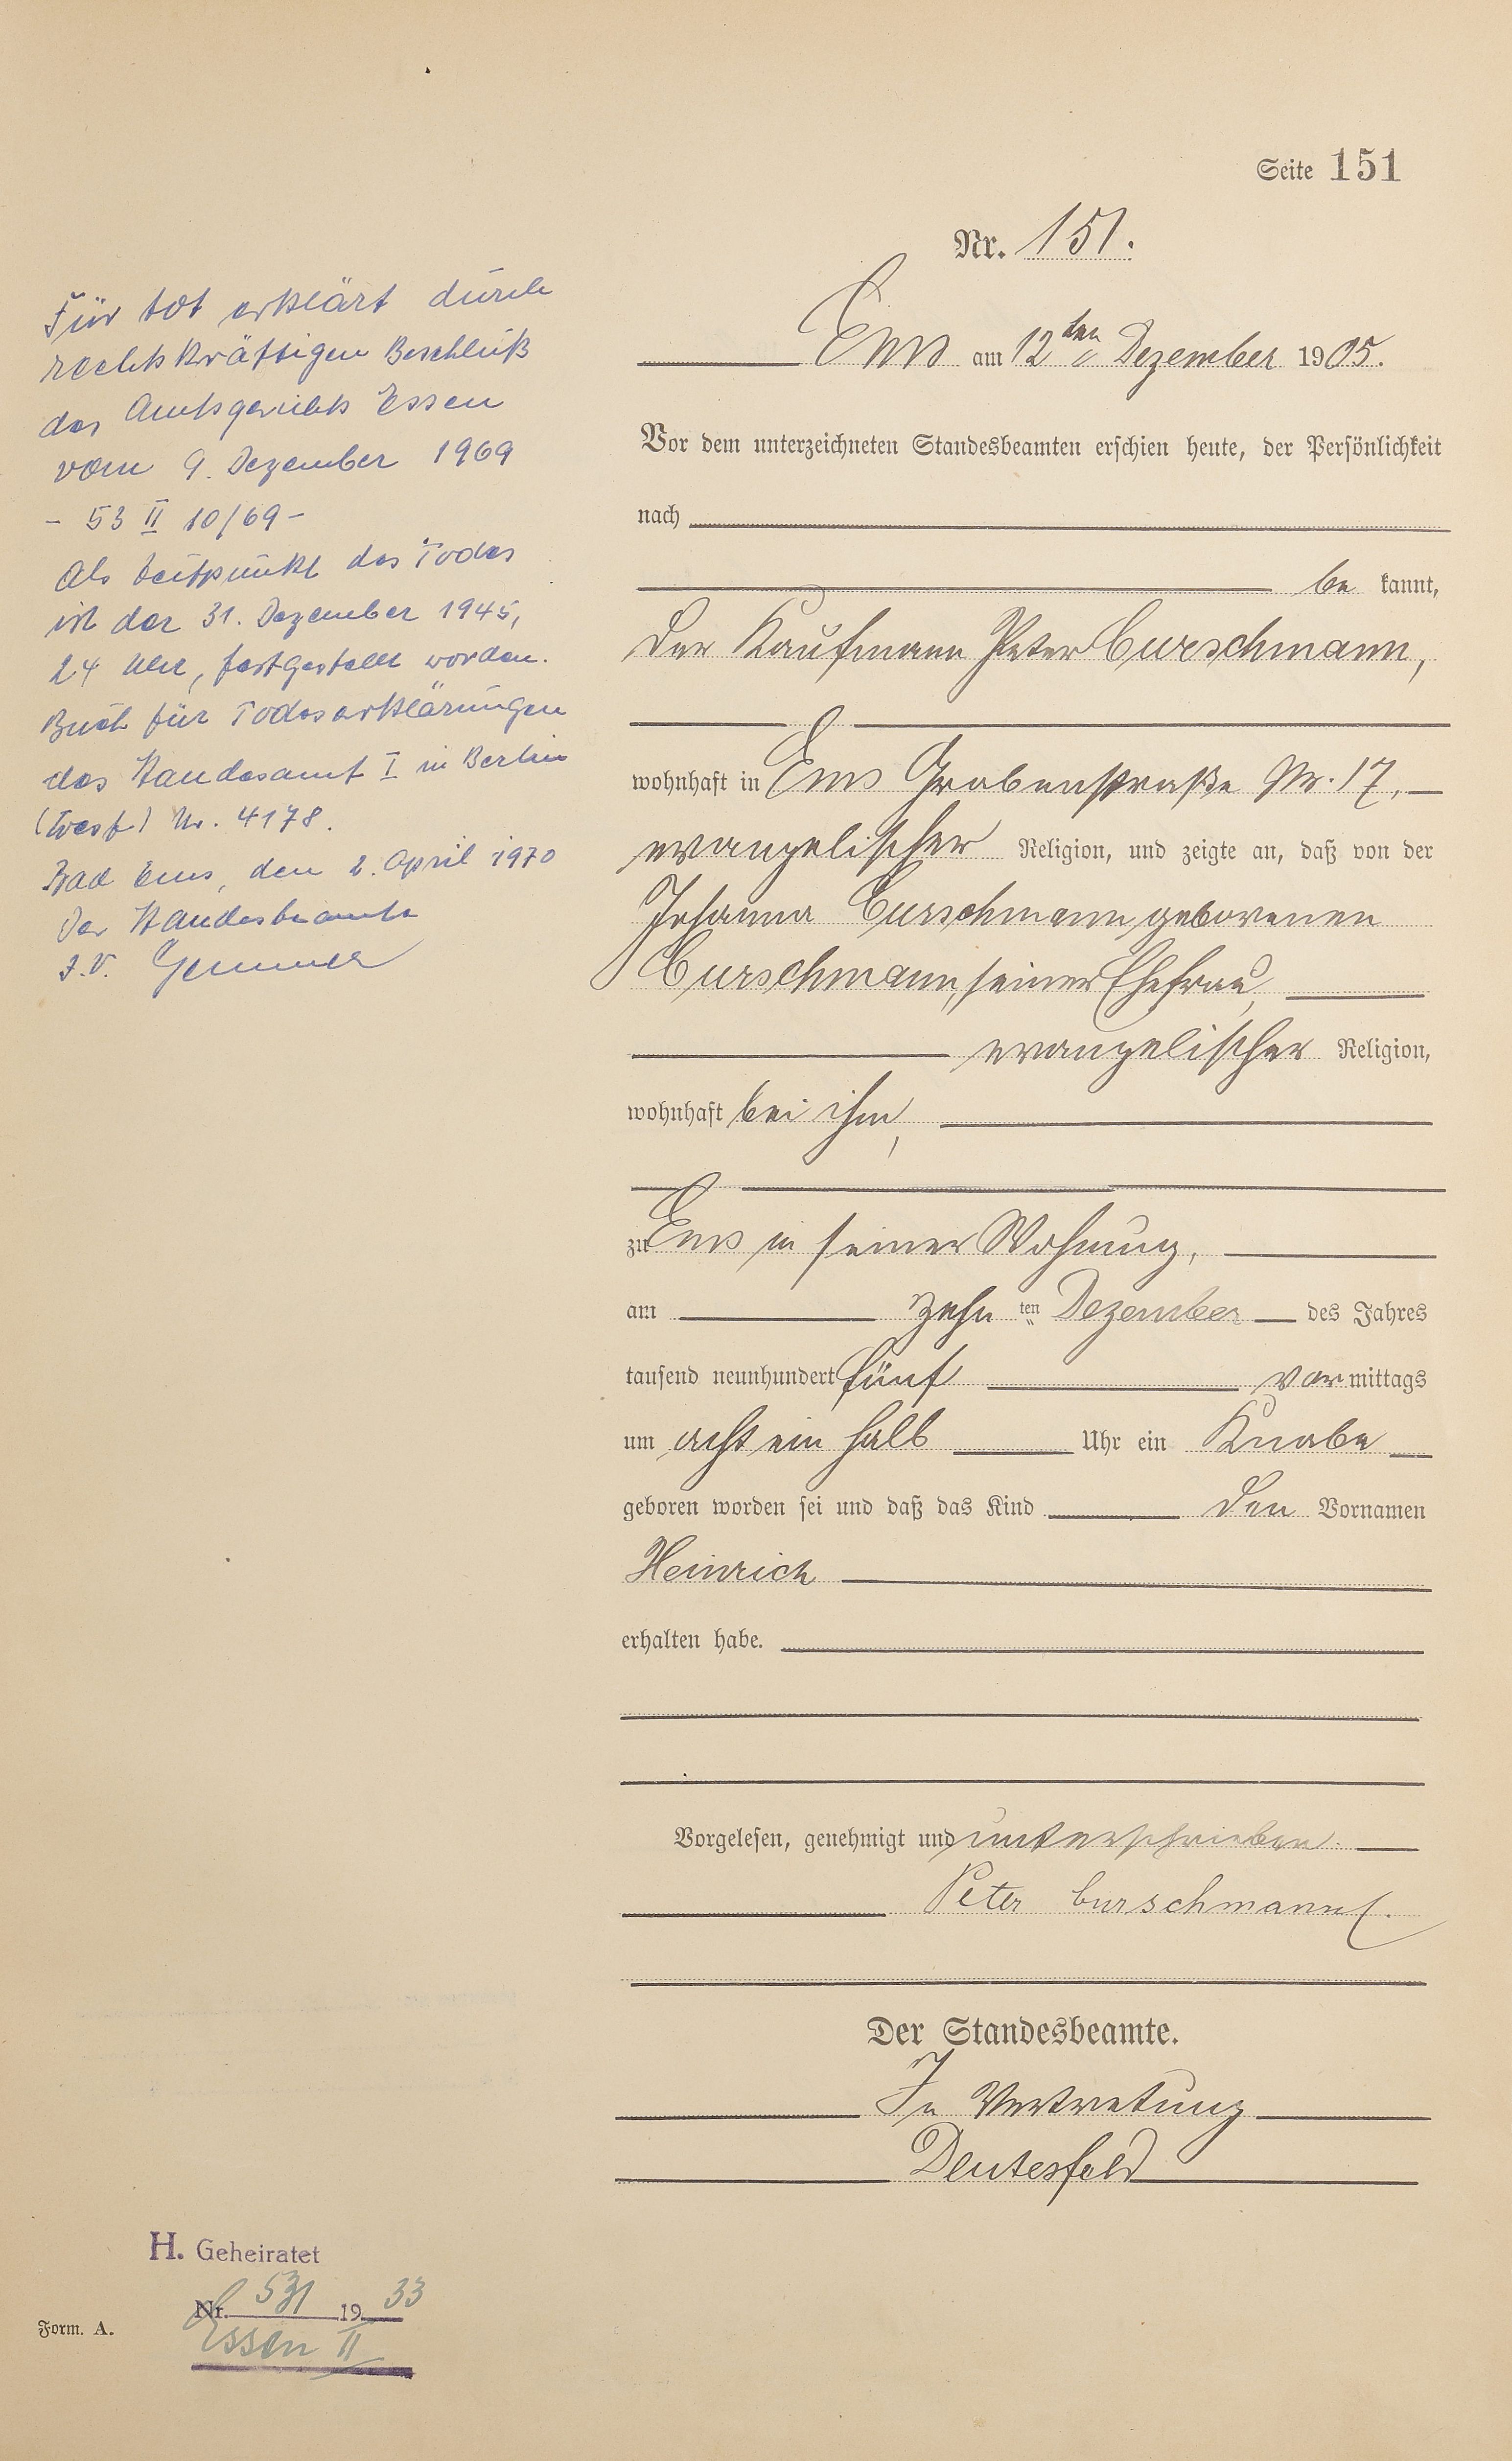 Seite 151
Nr. 151.
Ems am 12ten Dezember 1905.
Vor dem unterzeichneten Standesbeamten erschien heute, der Persönlichkeit
nach
be kannt,
der Kaufmann Peter Curschmann,
wohnhaft in Ems Grabenstraße Nr. 17,
evangelischer Religion, und zeigte an, daß von der
Johanna Curschmann geborenen
Curschmann, seiner Ehefrau,
evangelischer Religion,
wohnhaft bei ihm,
zu Ems in seiner Wohnung,
am zehn ten Dezember des Jahres
tausend neunhundert fünf vor mittags
um acht ein halb Uhr ein Knabe
geboren worden sei und daß das Kind den Vornamen
Heinrich
erhalten habe.
Vorgelesen, genehmigt und unterschrieben.
Peter Curschmann
Der Standesbeamte.
In Vertretung
Deutesfeld
Für tot erklärt durch
rechtskräftigen Beschluß
des Amtsgerichts Essen
vom 9. Dezember 1969
- 53 II 10/69 -
Als Zeitpunkt des Todes
ist der 31. Dezember 1945,
24 Uhr, festgestellt worden.
Buch für Todeserklärungen
des Standesamt I in Berlin
(West) Nr. 4178.
Bad Ems, den 2. April 1970
Der Standesbeamte
I.V. Gemmer
H. Geheiratet
Nr. 531 1933
Essen II
Form. A.